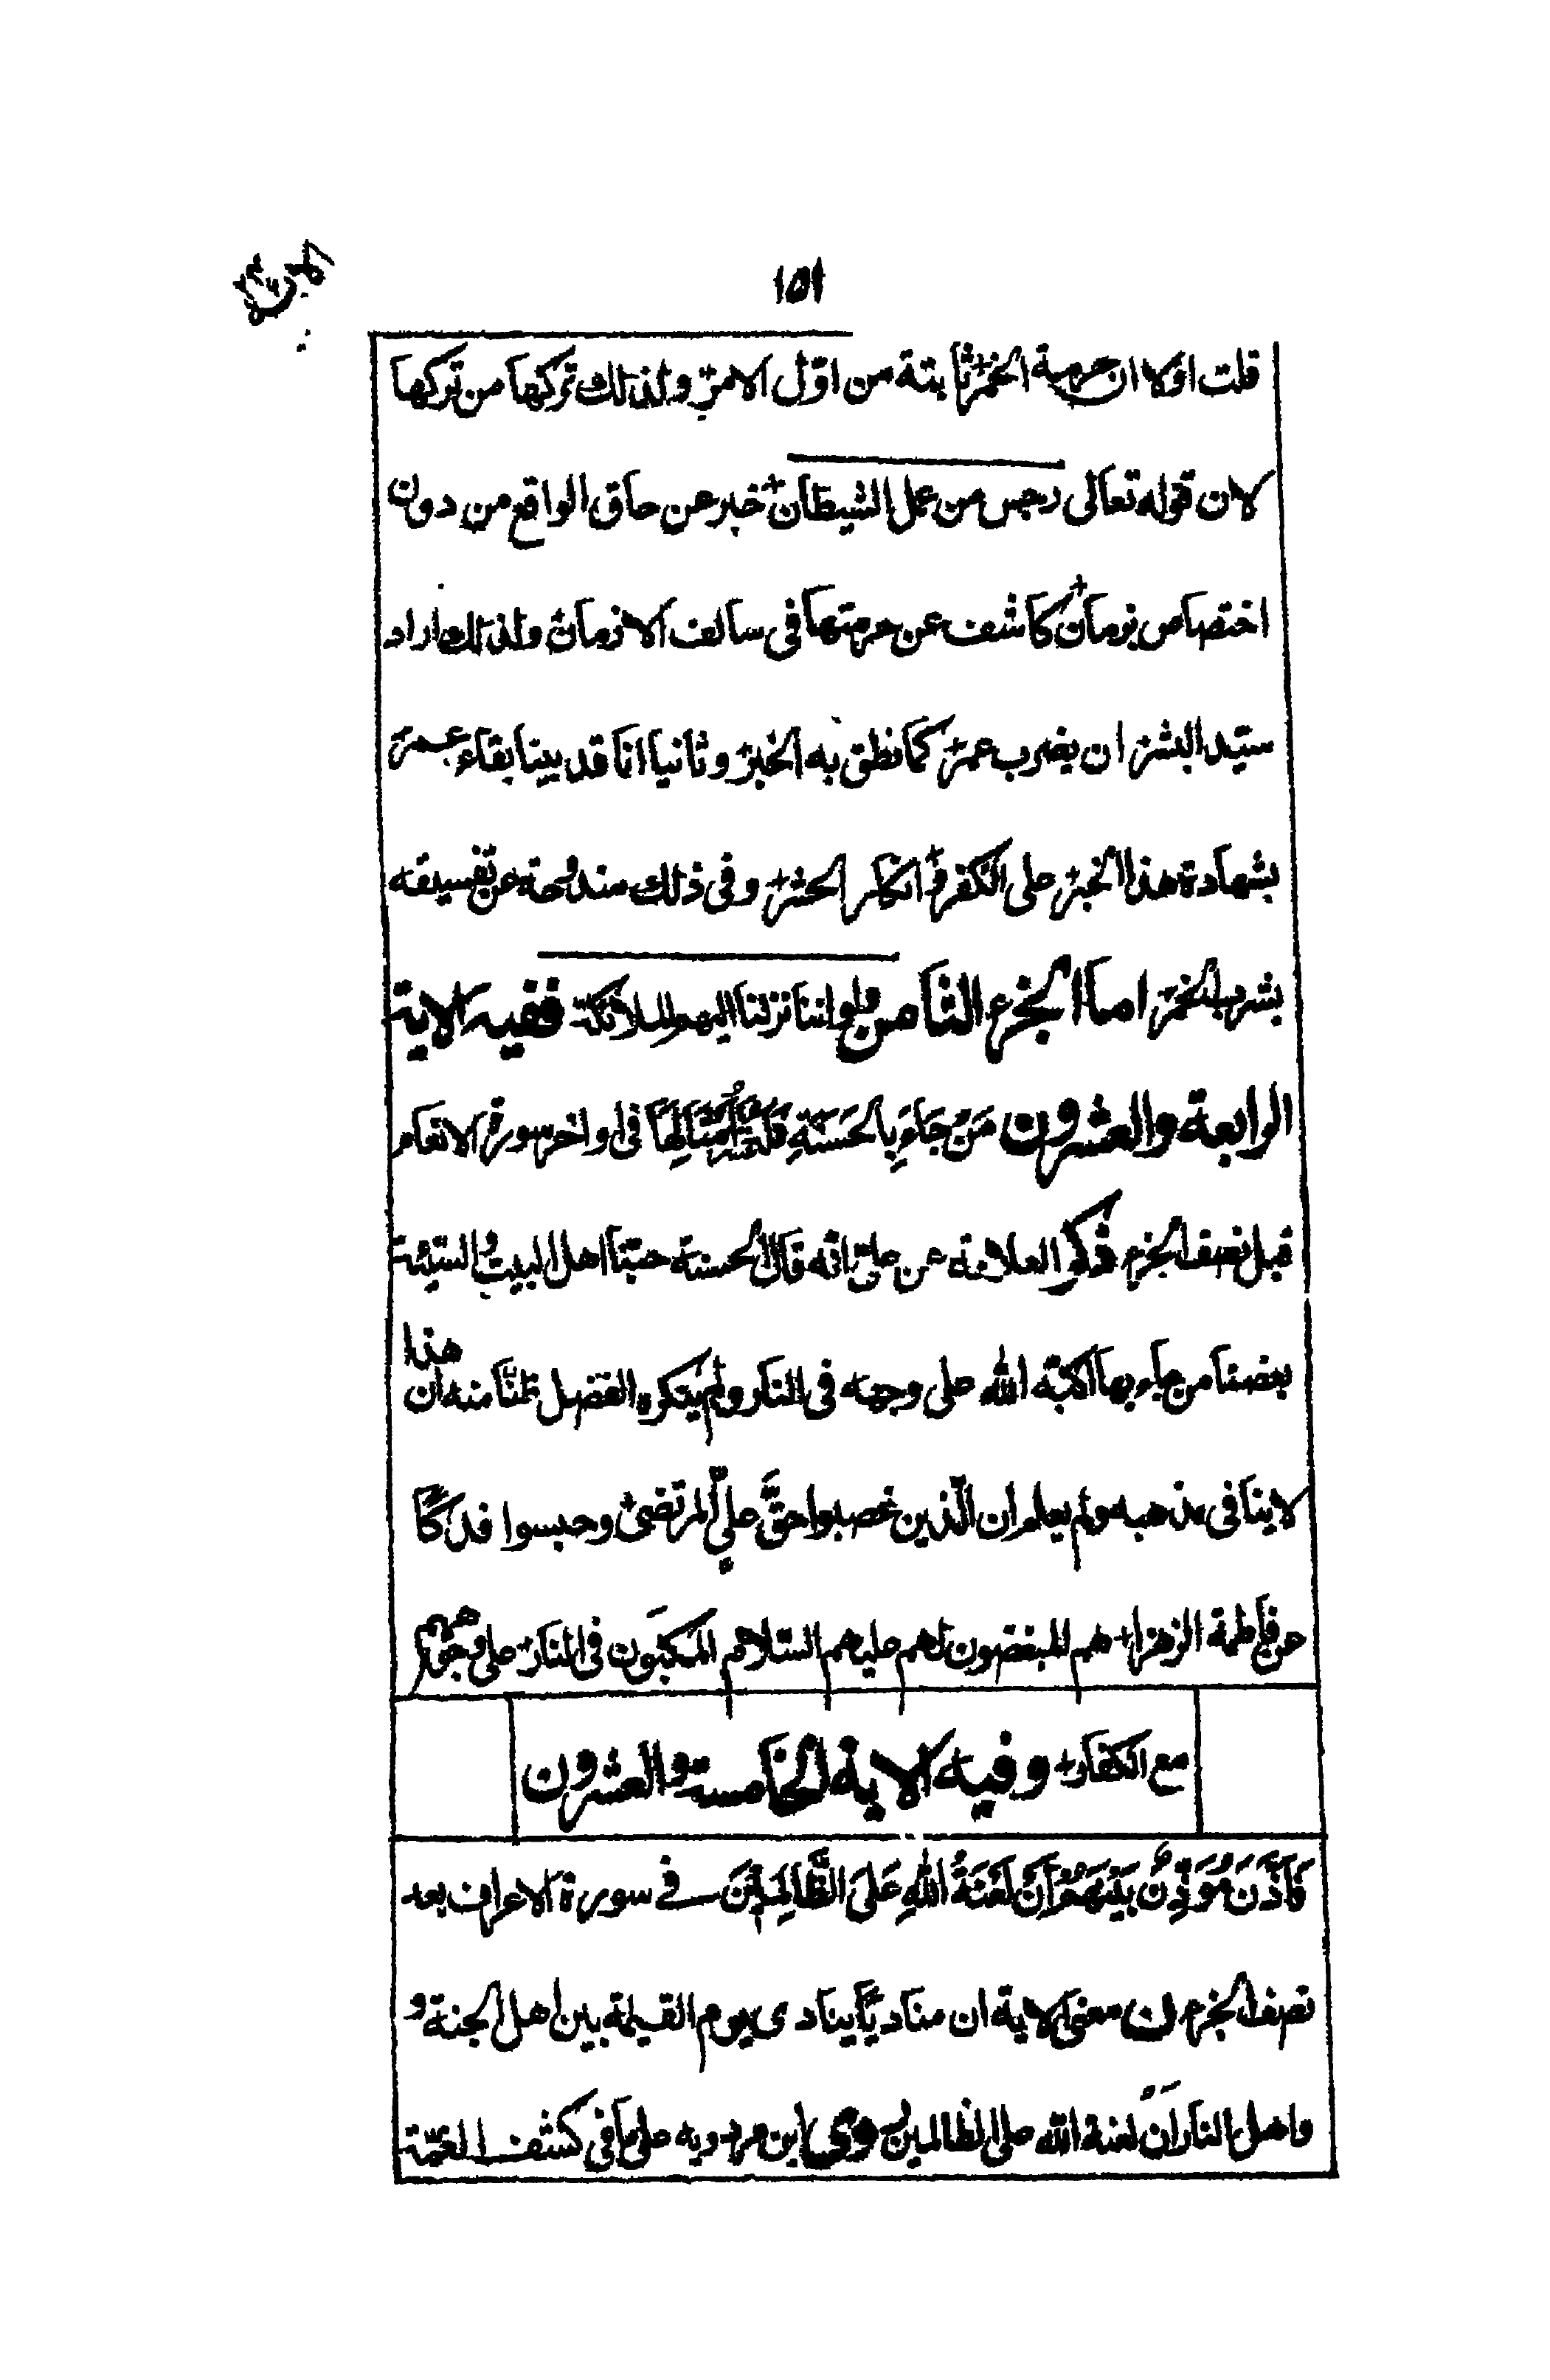 ١٥١
قلت اولا ان حرمة الخمر ثابتة من اوّل الامر ولذلك تركها من تركها
لان قوله تعالى رجس من عمل الشيطان خبر عن حاق الواقع من دون
اختصاص بزمان كاشف عن حرمتها فى سالف الازمان ولذلك اراد
سيّد البشر ان يضرب عمر كما نطق به الخبر وثانيا انا قد بينا بقاء عمر
بشهادة هذا الخبر على الكفر وانكار الحشر وفى ذلك مندوحة عن تفسيقه
بشرب الخمر اما الجزء الثامن ولو اننا نزلنا اليهم الملائكة ففيه الاية
الرابعة والعشرون مَنْ جَاءَ بِالحَسَنَةِ فَلَهُ عَشْرُ اَمْثَالِهَا فى اواخر سورة الانعام
قبل نصف الجزء ذكر العلامة عن على انه قال الحسنة حبّنا اهل البيت والسّيئة
بغضنا من جاء بها اكبّه الله على وجهه فى النار ولم ينكره الفضل ظنّا منه ان هذا
لاينافى مذهبه ولم يعلم ان الّذين غصبوا حقَّ علىٍّ المرتضى وحبسوا فدكًا
عن فاطمة الزهراء هم المبغضون لهم عليهم السّلام المكبّون فى النار على وجوههم
مع الكفار وفيه الاية الخامسة والعشرون
فَاَذَّنَ مُؤَذِّنٌ بَيْنَهُمْ اَنْ لَعْنَةُ اللهِ عَلَى الظَّالِمِيْنَ فى سورة الاعراف بعد
نصف الجزء معنى الاية ان مناديًا ينادى يوم القيمة بين اهل الجنة و
واهل النار انَّ لعنة الله على الظالمين روى ابن مردويه على ما فى كشف الغمّة